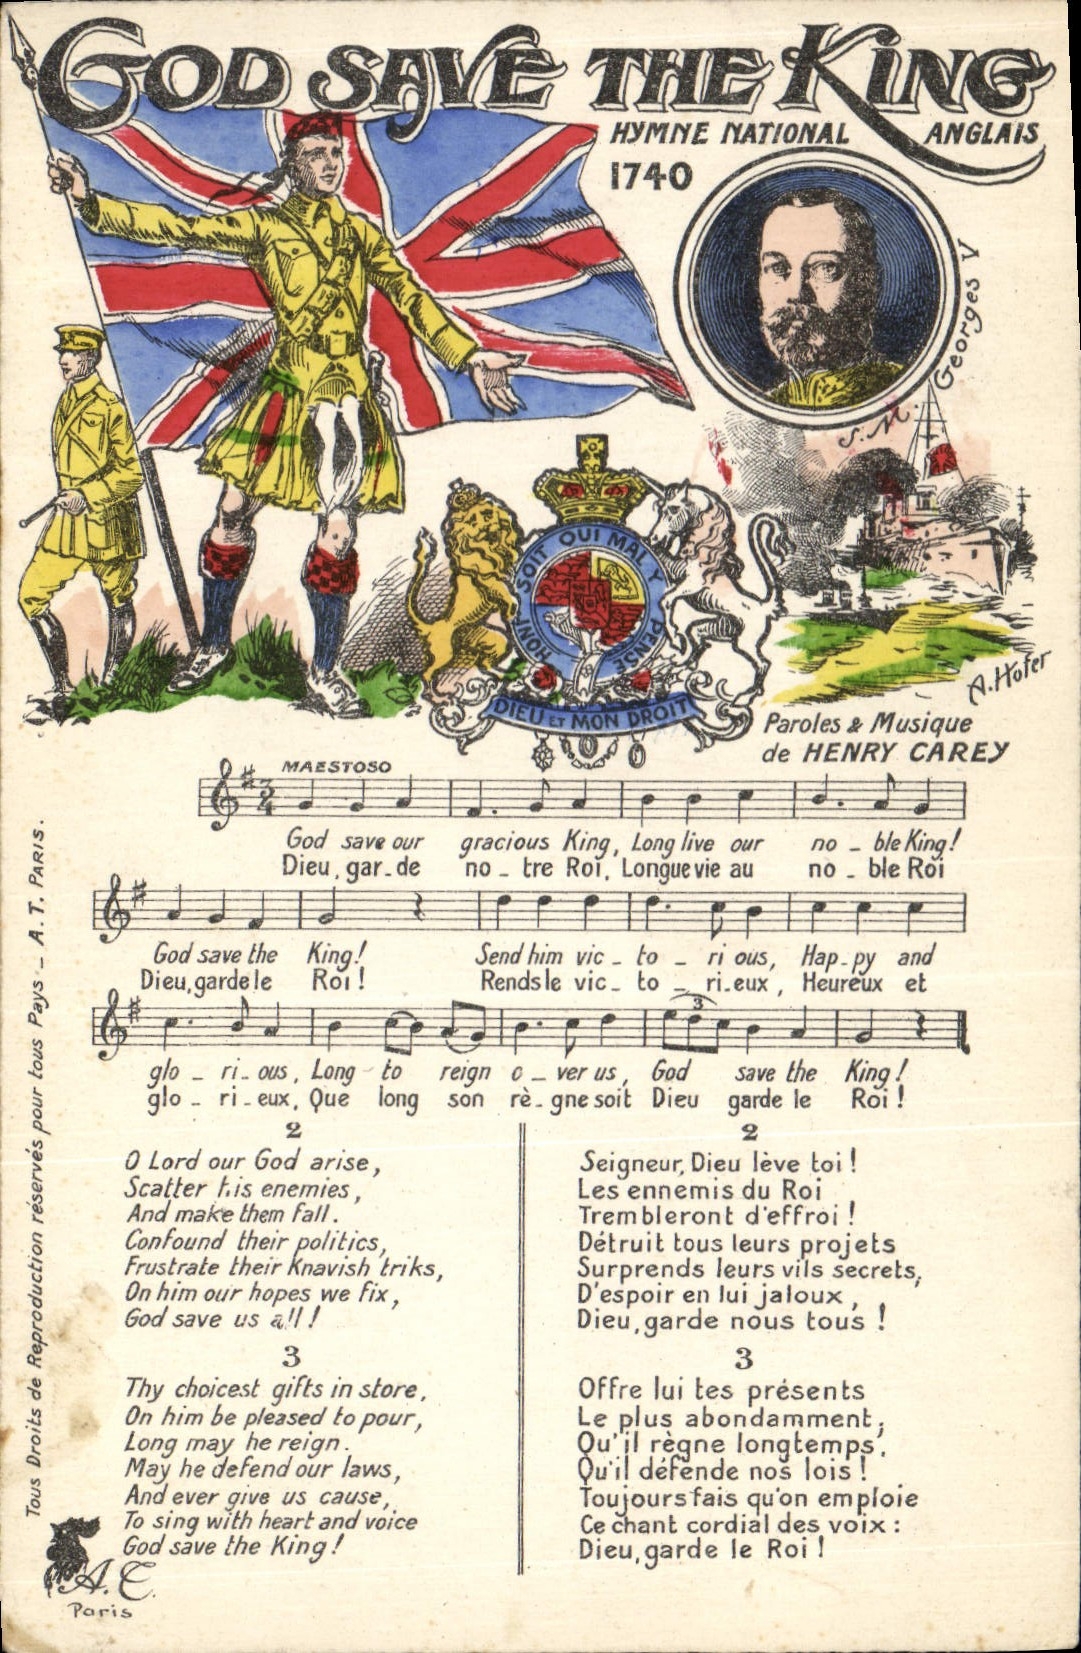 GOD SAVE THE KING
HYMNE NATIONAL ANGLAIS
1740
S.M. Georges V
HONI SOIT QUI MAL Y PENSE
DIEU ET MON DROIT
A. Hofer
Paroles & Musique
de HENRY CAREY
MAESTOSO
3
4
God save our gracious King, Long live our no _ ble King!
Dieu, gar_de no _ tre Roi, Longue vie au no _ ble Roi
God save the King! Send him vic _ to _ ri ous, Hap_py and
Dieu, garde le Roi! Rends le vic_ to _ ri_eux, Heureux et
3
glo _ ri_ ous, Long to reign o _ ver us, God save the King!
glo _ ri_eux, Que long son rè_gne soit Dieu garde le Roi!
2
O Lord our God arise,
Scatter his enemies,
And make them fall.
Confound their politics,
Frustrate their Knavish triks,
On him our hopes we fix,
God save us all!
3
Thy choicest gifts in store,
On him be pleased to pour,
Long may he reign.
May he defend our laws,
And ever give us cause,
To sing with heart and voice
God save the King!
2
Seigneur, Dieu lève toi!
Les ennemis du Roi
Trembleront d'effroi!
Détruit tous leurs projets
Surprends leurs vils secrets,
D'espoir en lui jaloux,
Dieu, garde nous tous!
3
Offre lui tes présents
Le plus abondamment,
Qu'il règne longtemps,
Qu'il défende nos lois!
Toujours fais qu'on emploie
Ce chant cordial des voix:
Dieu, garde le Roi!
Tous Droits de Reproduction réservés pour tous Pays - A. T. PARIS.
A. T.
Paris